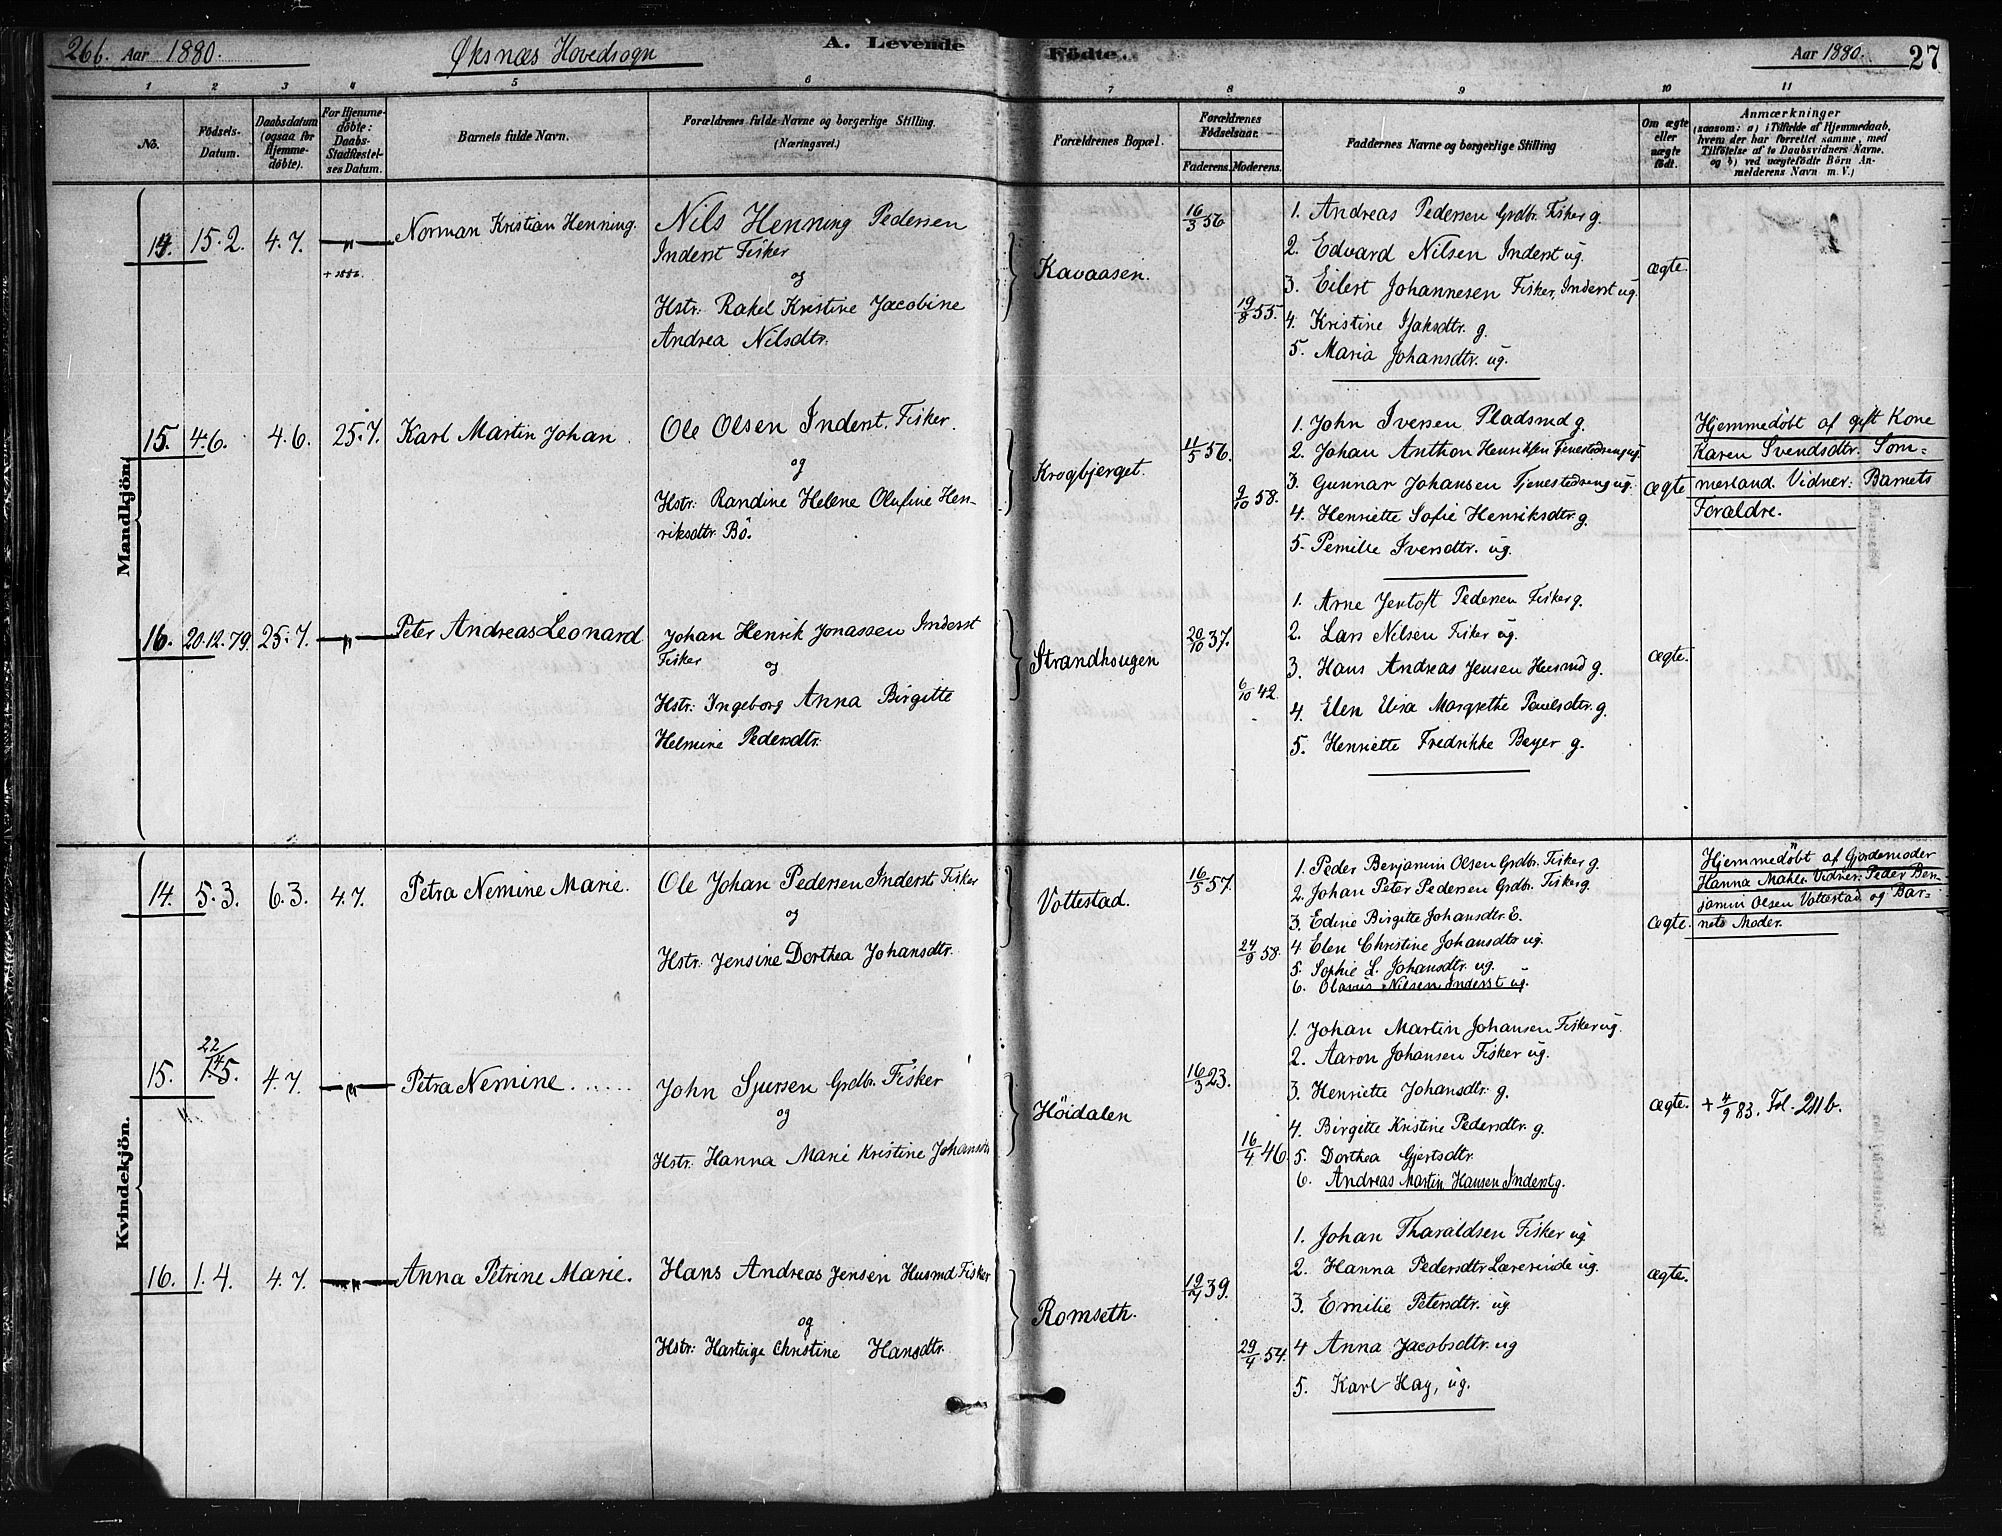 26b. Aar 1880. Øksnæs Hovedsogn A. Levende Födte. Aar 1880. 27
1 2 3 4 5 6 7 8 9 10 11
No.
Födsels-
Datum.
Daabsdatum
(ogsaa for
Hjemme-
döbte).
For Hjemme-
döbte:
Daabs-
Stadfæstel-
ses Datum.
Barnets fulde Navn.
Forældrenes fulde Navne og borgerlige Stilling.
(Næringsvei.)
Forældrenes Bopæl.
Forældrenes
Födselsaar.
Faderens. Moderens.
Faddernes Navne og borgerlige Stilling
Om ægte
eller
uægte
födt.
Anmærkninger
(saasom: a) i Tilfælde af Hjemmedaab,
hvem der har forrettet samme, med
Tilföielse af to Daabsvidners Navne.
og b) ved uægtefödte Börn An-
melderens Navn m. V.)
Mandkjön.
14. 15.2. 4.7. — " —
+ 1886.
Norman Kristian Henning.
Nils Henning Pedersen
Inderst Fisker
og
Hstr: Rakel Kristine Jacobine
Andrea Nilsdtr.
Kavaasen.
16/3 56
19/8 55.
1. Andreas Pedersen Grdbr. Fisker g.
2. Edvard Nilsen Inderst ug.
3. Eilert Johannesen Fisker, Inderst ug.
4. Kristine Isaksdtr. g.
5. Maria Johansdtr. ug.
ægte.
15. 4.6. 4.6. 25.7.
Karl Martin Johan
Ole Olsen Inderst. Fisker.
og
Hstr: Randine Helene Olufine Hen-
riksdttr. Bö.
Krogbjerget.
11/5 56.
9/10 58.
1. John Iversen Pladsmd g.
2. Johan Anthon Henriksen Tjenestedreng ug.
3. Gunnar Johansen Tjenestedreng ug.
4. Henriette Sofie Henriksdtr. g.
5. Pernille Iversdtr. ug.
ægte
Hjemmedöbt af gift Kone
Karen Svendsdtr. Som-
merland. Vidner: Barnets
Forældre.
16. 20.12.79. 25.7. — " —
Peter Andreas Leonard
Johan Henrik Jonassen Inderst
Fisker
og
Hstr: Ingeborg Anna Birgitte
Helmine Pedersdtr.
Strandhougen
20/10 37.
6/10 42.
1. Arne Jentoft Pedersen Fisker g.
2. Lars Nilsen Fisker ug.
3. Hans Andreas Jensen Husmd g.
4. Elen Elisa Margrethe Paulsdtr. g.
5. Henriette Fredrikke Beyer g.
ægte.
Kvindekjön.
14. 5.3. 6.3. 4.7.
Petra Nemine Marie.
Ole Johan Pedersen Inderst Fisker
og
Hstr: Jensine Dorthea Johansdtr.
Vottestad.
16/5 57.
24/9 58.
1. Peder Benjamin Olsen Grdbr. Fisker g.
2. Johan Peter Pedersen Grdbr. Fisker g.
3. Edine Birgitte Johansdtr E.
4 Elen Christine Johansdtr ug.
5. Sophie L. Johansdtr. ug.
6. Olavus Nilsen Inderst ug.
ægte.
Hjemmedöbt af Gjordemoder
Hanna Mahle. Vidner: Peder Ben-
jamin Olsen Vottestad og Bar-
nets Moder.
22/
15. 5. 4.7. — " —
Petra Nemine
John Sjursen Grdbr. Fisker
og
Hstr: Hanna Marie Kristine Johansdtr
Höidalen
16/3 23.
16/4 46
1. Johan Martin Johansen Fisker ug.
2. Aaron Johansen Fisker ug.
3. Henriette Johansdtr. g.
4. Birgitte Kristine Pedersdtr. g.
5. Dorthea Gjertsdtr.
6. Andreas Martin Hansen Inderst g.
ægte.
+ 4/9 83. Fol. 211 b.
16. 1.4. 4.7. — " —
Anna Petrine Marie.
Hans Andreas Jensen Husmd Fisker
og
Hstr: Hartvige Christine Hansdtr.
Romseth.
39.
29/4 54.
1. Johan Tharaldsen Fisker ug
2. Hanna Pedersdtr Lærerinde ug.
3. Emilie Petersdtr. ug
4 Anna Jacobsdtr. ug
5. Karl Hay, ug.
ægte.